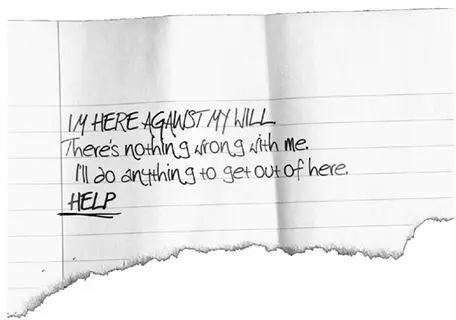 I'M HERE AGAINST MY WILL
There's nothing wrong with me.
I'll do anything to get out of here.
HELP